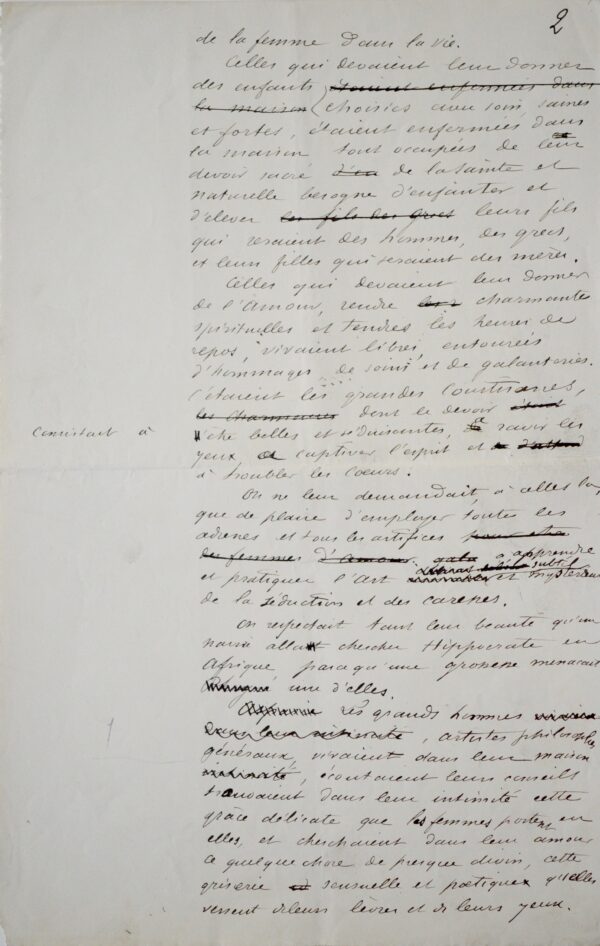 2
de la femme dans la vie.
Celles qui devaient leur donner
des enfants étaient enfermées dans
la maison choisies avec soin, saines
et fortes, étaient enfermées dans
la maison tout occupées de leur
devoir sacré d'en de la sainte et
naturelle besogne d'enfanter et
d'élever les fils des grecs leurs fils
qui seraient des hommes, des grecs,
et leur filles qui seraient des mères.
Celles qui devaient leur donner
de l'Amour, rendre charmantes
spirituelles et tendres les heures de
repos, vivaient libres, entourées
d'hommages, de soins et de galanteries.
C'étaient les grandes Courtisanes,
les charmeuses dont le devoir était
consistait à
être belles et séduisantes, à ravir les
yeux à captiver l'esprit et
à troubler les cœurs.
On ne leur demandait, à celles là,
que de plaire d'employer toutes les
adresses et tous les artifices pour être
des femmes d'amour, à apprendre
et pratiquer l'art subtil et mystérieux
de la séduction et des caresses.
On respectait tant leur beauté qu'un
navire alla chercher Hippocrate en
Afrique parce qu'une grossesse menaçait
une d'elles.
Les grands hommes
dans leur intimité, artistes philosophes,
généraux, vivaient dans leur maison
écoutaient leurs conseils
trouvaient dans leur intimité cette
grâce délicate que les femmes portent en
elles, et cherchaient dans leur amour
ce quelque chose de presque divin, cette
griserie sensuelle et poétique qu'elles
versent de leurs lèvres et de leurs yeux.